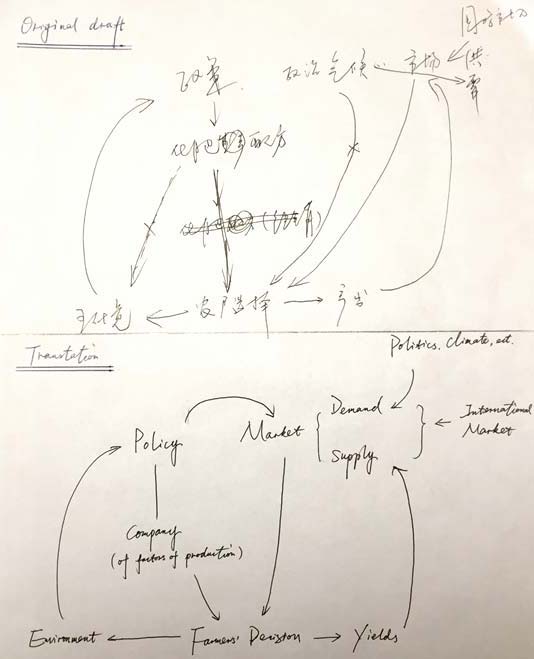 Original draft
国际市场
政策 政治气候 市场 供
需
环境 农户选择 产出
Translation
Politics, Climate, ect.
Demand
Policy Market International
Market
Supply
Company
(of factors of production)
Enironment Farmers' Decision Yields